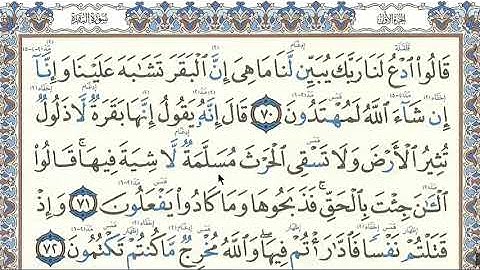 الجزء الأول سورة البقرة
قَالُوا۟ ٱدْعُ لَنَا رَبَّكَ يُبَيِّن لَّنَا مَا هِىَ إِنَّ ٱلْبَقَرَ تَشَٰبَهَ عَلَيْنَا وَإِنَّآ
إِن شَآءَ ٱللَّهُ لَمُهْتَدُونَ ٧٠ قَالَ إِنَّهُۥ يَقُولُ إِنَّهَا بَقَرَةٌ لَّا ذَلُولٌ
تُثِيرُ ٱلْأَرْضَ وَلَا تَسْقِى ٱلْحَرْثَ مُسَلَّمَةٌ لَّا شِيَةَ فِيهَا ۚ قَالُوا۟
ٱلْـَٰٔنَ جِئْتَ بِٱلْحَقِّ ۚ فَذَبَحُوهَا وَمَا كَادُوا۟ يَفْعَلُونَ ٧١ وَإِذْ
قَتَلْتُمْ نَفْسًا فَٱدَّٰرَْٰٔتُمْ فِيهَا ۖ وَٱللَّهُ مُخْرِجٌ مَّا كُنتُمْ تَكْتُمُونَ ٧٢